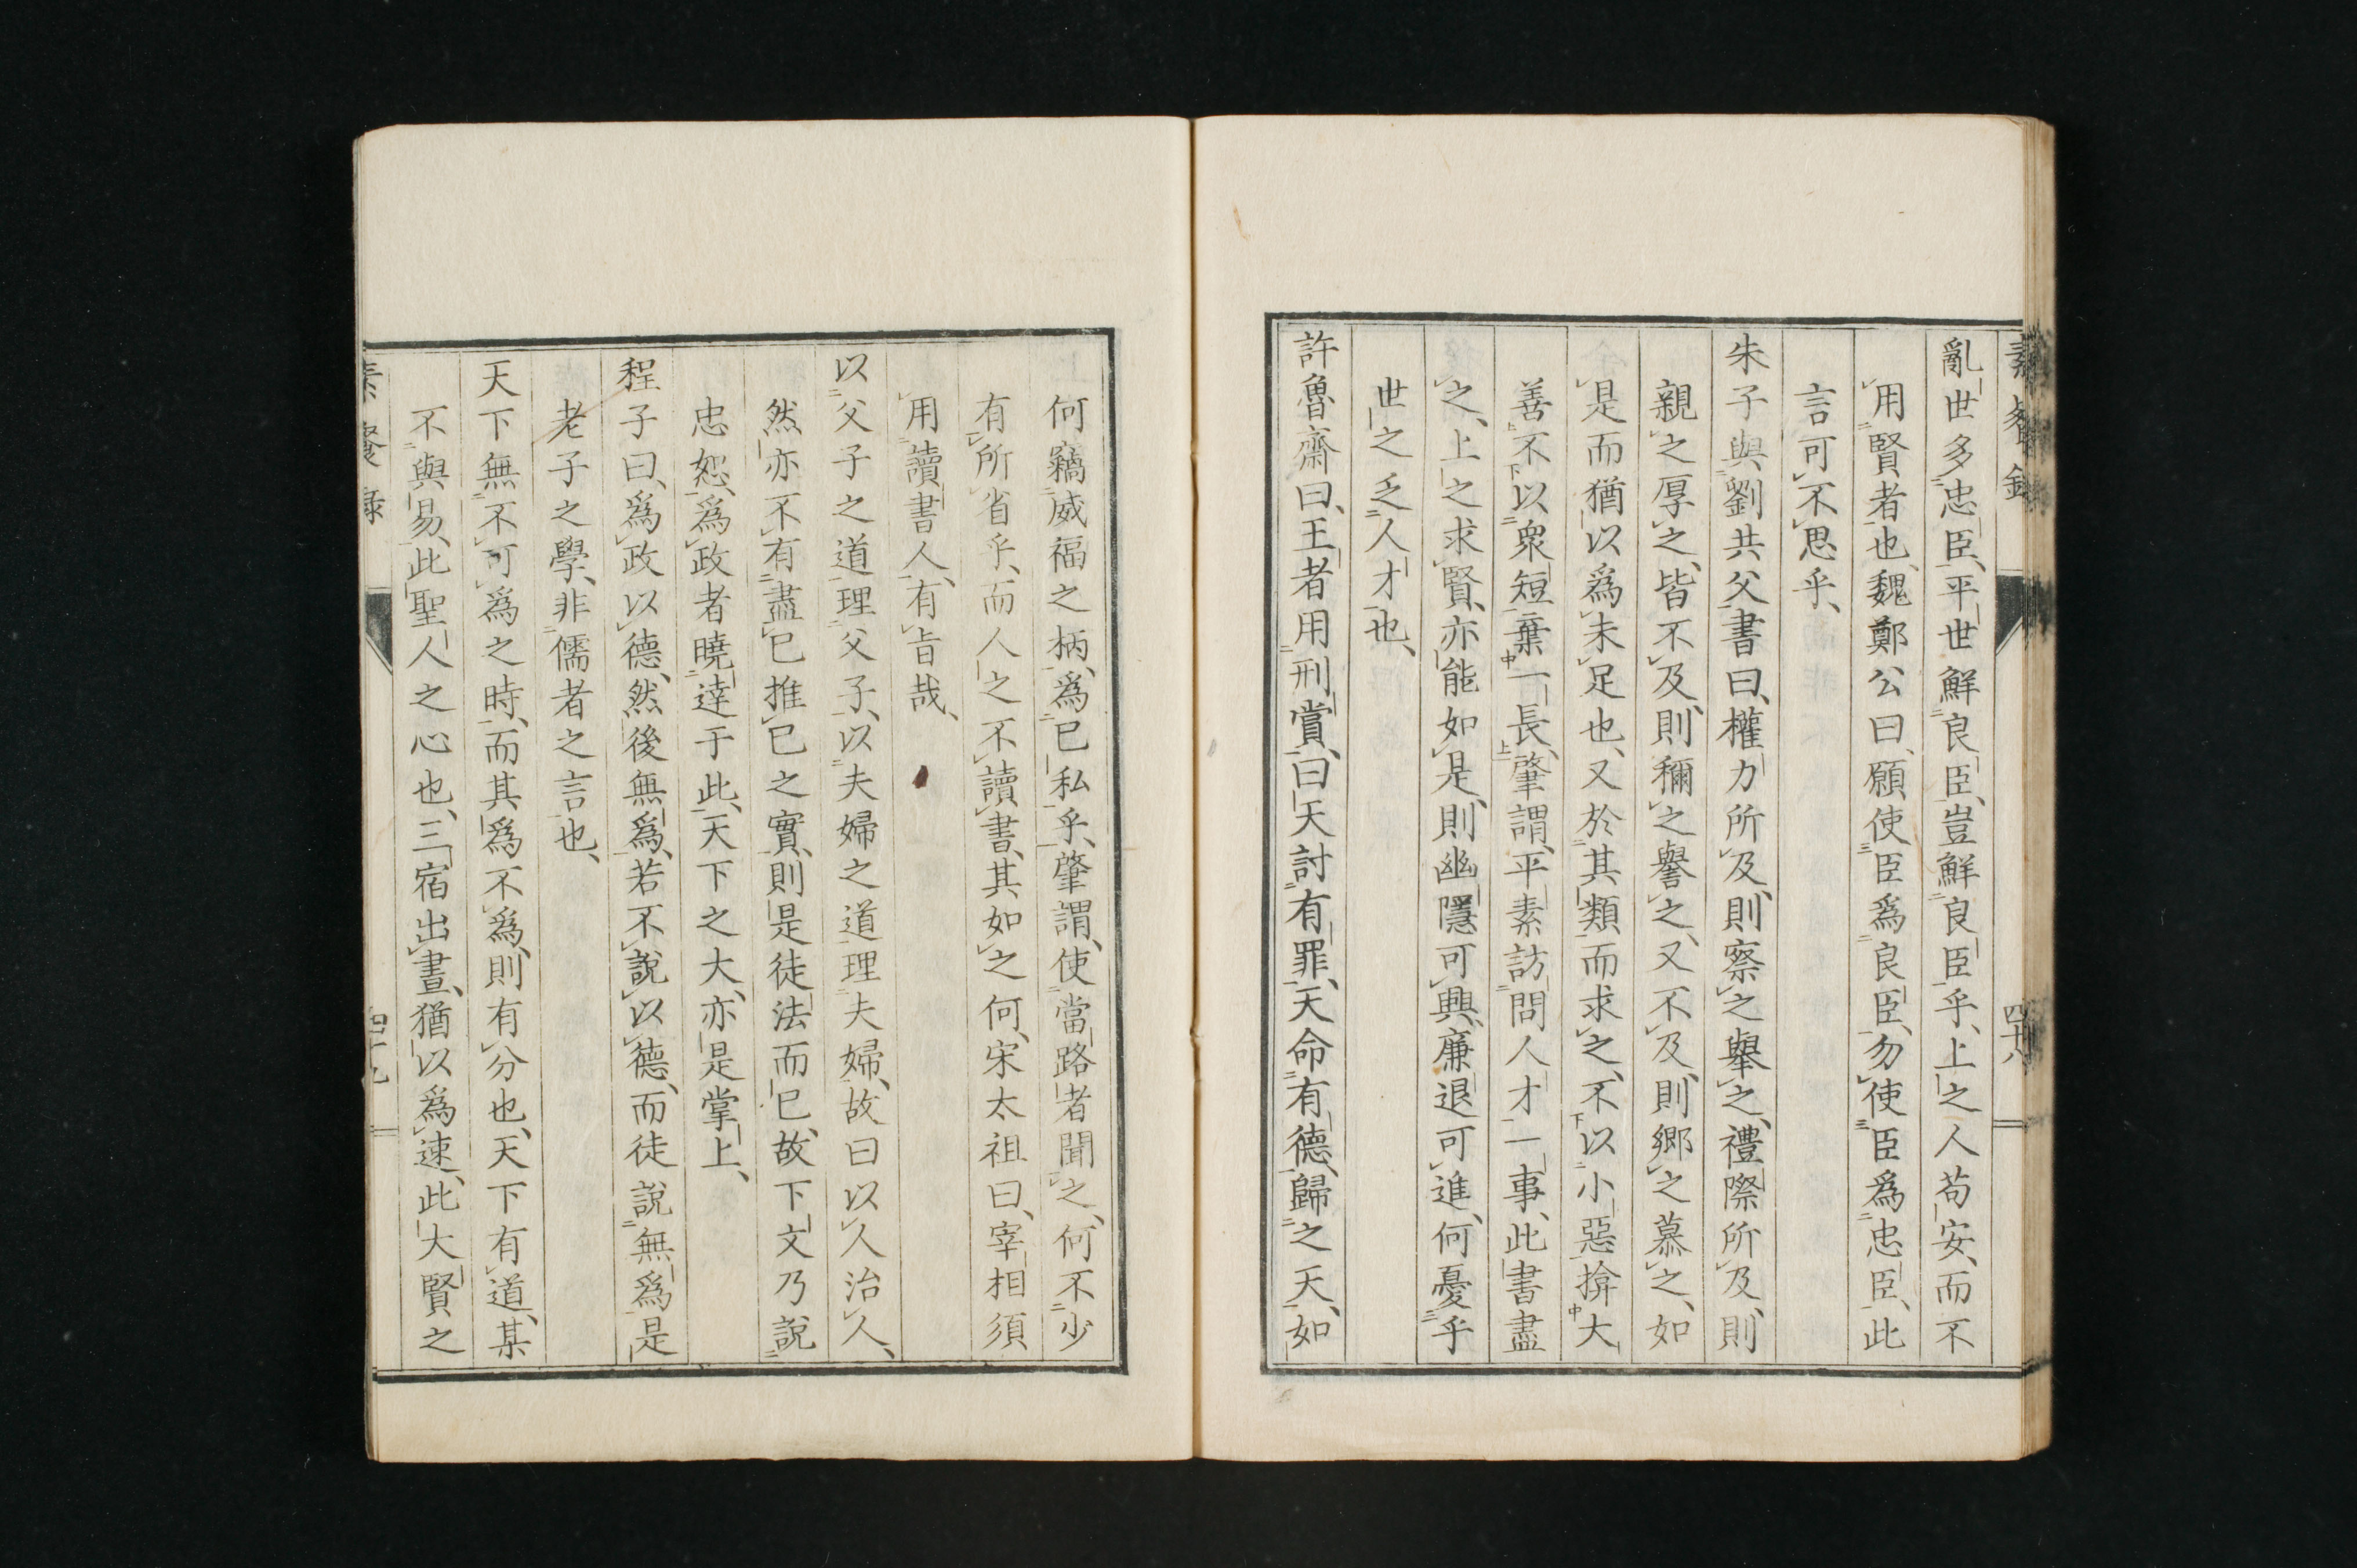 亂世多忠臣、平世鮮良臣、豈鮮良臣乎、上之人苟安、而不
用賢者也、魏鄭公曰、願使臣爲良臣、勿使臣爲忠臣、此
言可不思乎、
朱子與劉共父書曰、權力所及、則察之舉之、禮際所及、則
親之厚之、皆不及、則稱之譽之、又不及、則鄉之慕之、如
是而猶以爲未足也、又於其類而求之、不以小惡揜大
善、不以衆短棄一長、肇謂、平素訪問人才一事、此書盡
之、上之求賢、亦能如是、則幽隱可興、廉退可進、何憂乎
世之乏人才也、
許魯齋曰、王者用刑賞、曰天討有罪、天命有德、歸之天、如
何竊威福之柄、爲已私乎、肇謂、使當路者聞之、何不少
有所省乎、而人之不讀書、其如之何、宋太祖曰、宰相須
用讀書人、有旨哉、
以父子之道理父子、以夫婦之道理夫婦、故曰以人治人、
然亦不有盡已推已之實、則是徒法而已、故下文乃說
忠恕、爲政者曉達于此、天下之大、亦是掌上、
程子曰、爲政以德、然後無爲、若不說以德、而徒說無爲、是
老子之學、非儒者之言也、
天下無不可爲之時、而其爲不爲、則有分也、天下有道、某
不與易、此聖人之心也、三宿出晝、猶以爲速、此大賢之